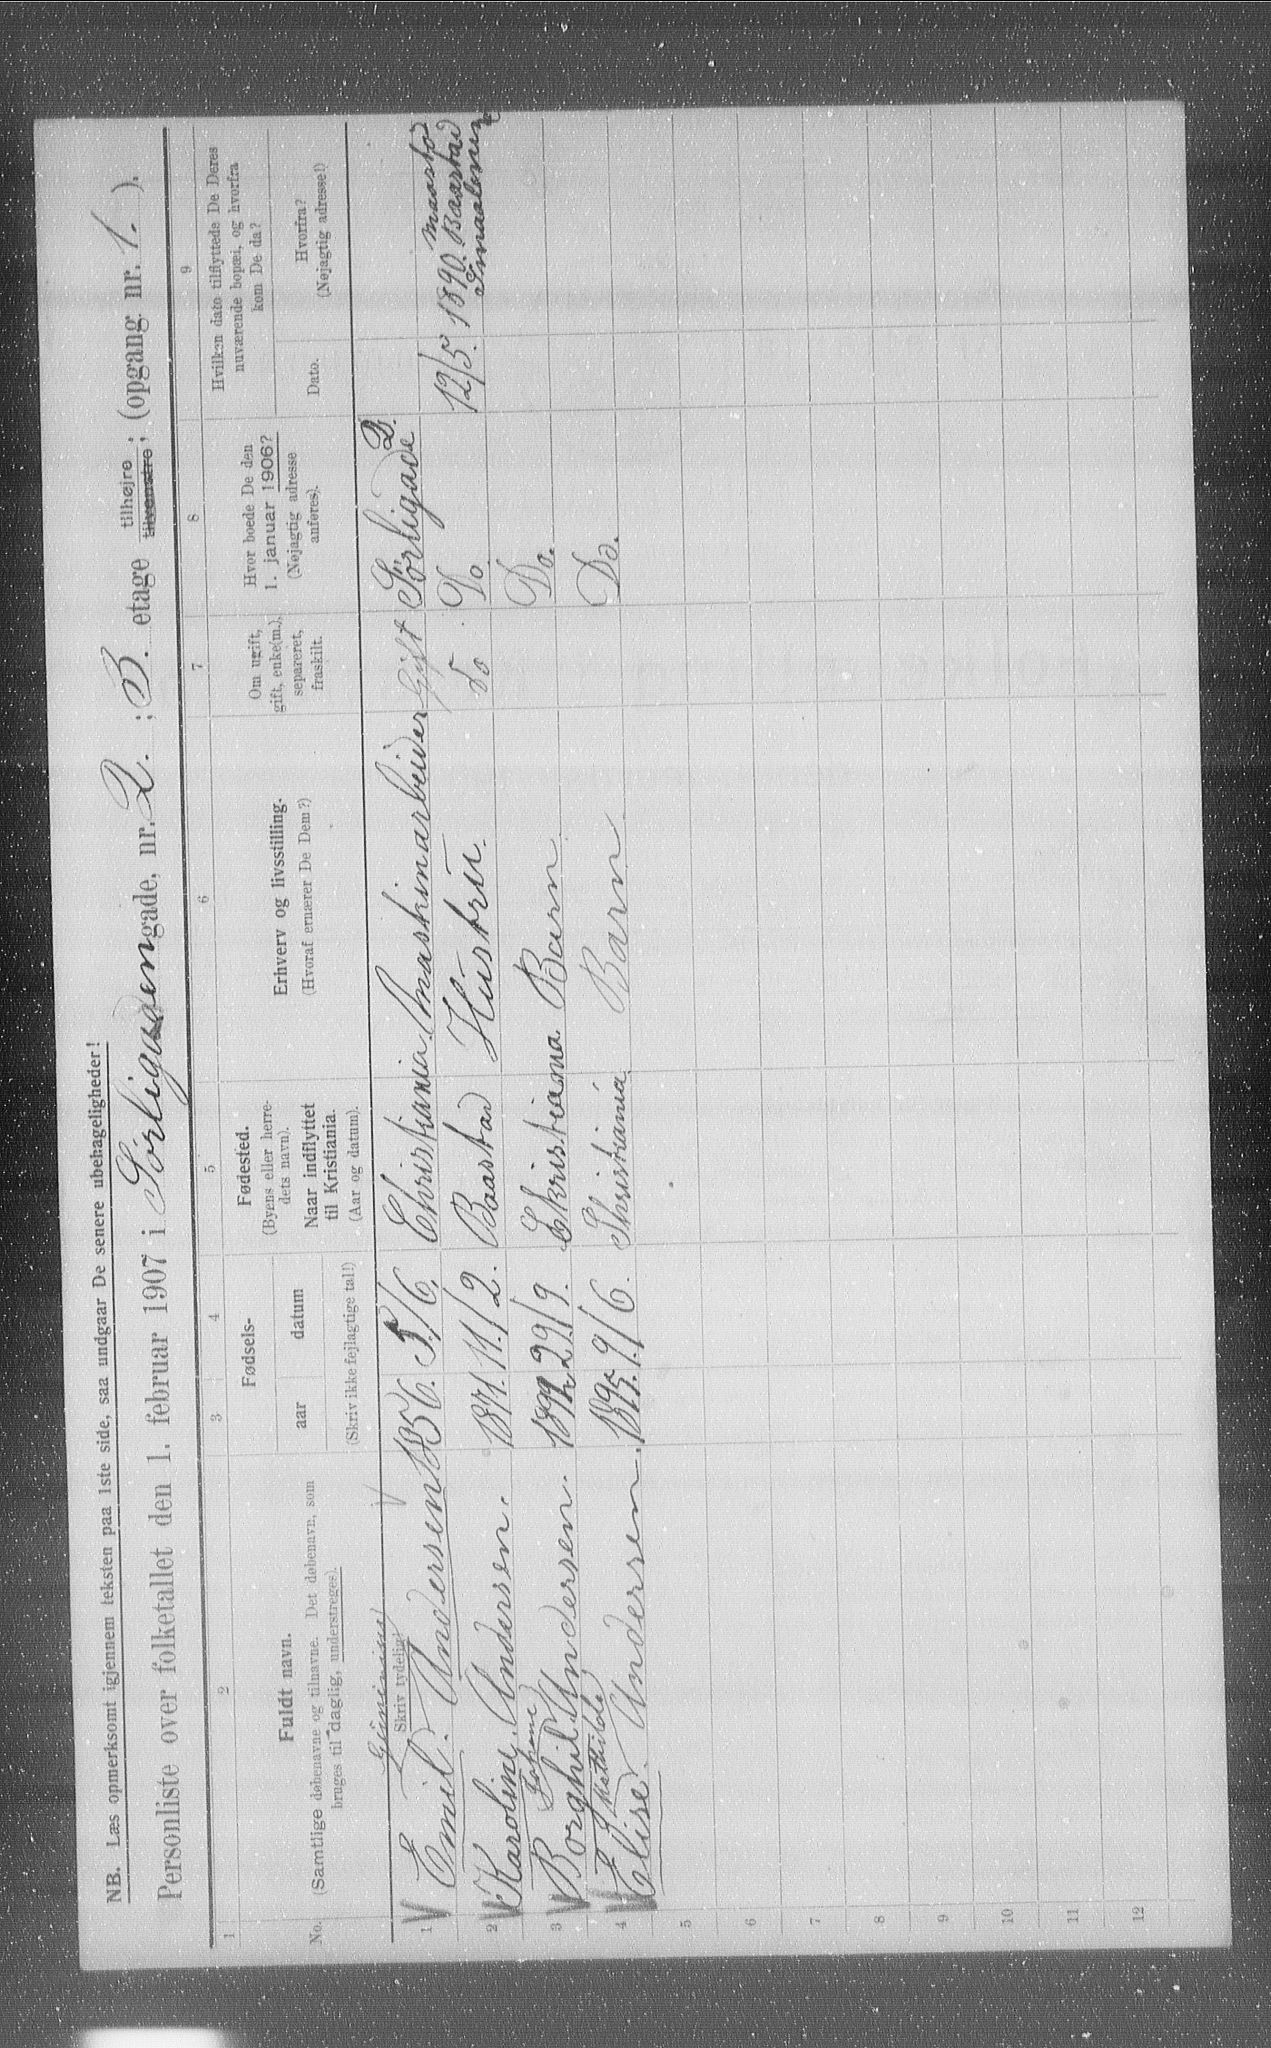 NB. Læs opmerksomt igjennem teksten paa 1ste side, saa undgaar De senere ubehageligheder!
Personliste over folketallet den 1. februar 1907 i Sørligadengade, nr. 2. ; 3. etage tilhøjre tilvenstre ; (opgang nr. 1. ).
1 2 3 4 5 6 7 8 9
No.
Fuldt navn.
(Samtlige døbenavne og tilnavne. Det døbenavn, som
bruges til daglig, understreges).
Skriv tydeligt
Fødsels-
aar
datum
(Skriv ikke fejlagtige tal!)
Fødested.
(Byens eller herre-
dets navn).
Naar indflyttet
til Kristiania.
(Aar og datum).
Erhverv og livsstilling.
(Hvoraf ernærer De Dem?)
Om ugift,
gift, enke(m.),
separeret,
fraskilt.
Hvor boede De den
1. januar 1906?
(Nøjagtig adresse
anføres).
Hvilken dato tilflyttede De Deres
nuværende bopæl, og hvorfra
kom De da?
Dato.
Hvorfra?
(Nøjagtig adresse!)
1 Emil. Andersen 1856. 5/6. Christiania Maskinarbeider Gift Sørligade 2.
2 Karoline Andersen. 1871. 11./2. Baastad Hüstrü. Do Do. 12/5. 1890. Baastad
3 Borghil Andersen. 29/9. Kristiania Barn Do.
4 Elise. Andersen. 1895. 9/6. Christiania Barn Do.
5
6
7
8
9
10
11
12